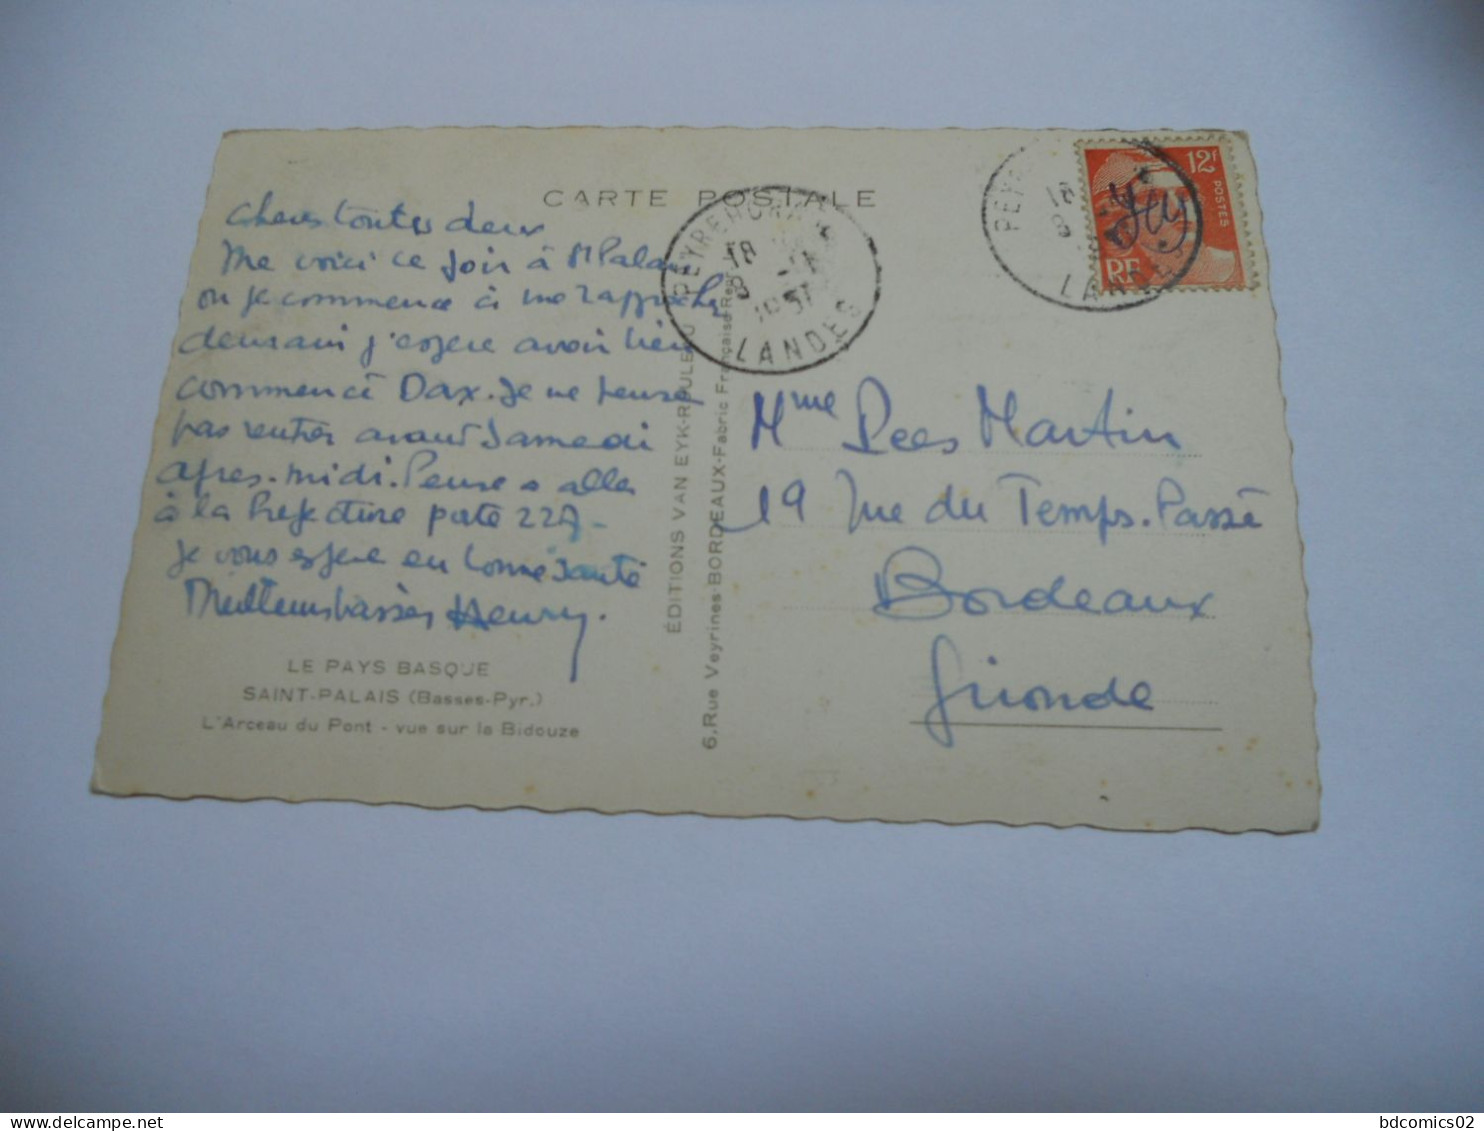 CARTE POSTALE
Cheres toutes deux
Me voici ce soir à St Palais
ou je commence à me rapprocher
demain j'espere avoir bien
commencé Dax. Je ne pense
pas rentrer avant Samedi
apres-midi. Pense a aller
à la Prefecture porte 227 -
Je vous espere en bonne santé
Meilleurs baisers Henry.
LE PAYS BASQUE
SAINT-PALAIS (Basses-Pyr.)
L'Arceau du Pont - vue sur la Bidouze
ÉDITIONS VAN EYK-ROULEAU
6, Rue Veyrines-BORDEAUX-Fabric Française
PEYREHORADE
18
8 - 1
1951
LANDES
PEY
18
8
LANDES
12F
POSTES
RF
Mme Martin
19 rue du Temps-Passé
Bordeaux
Gironde
bdcomics02